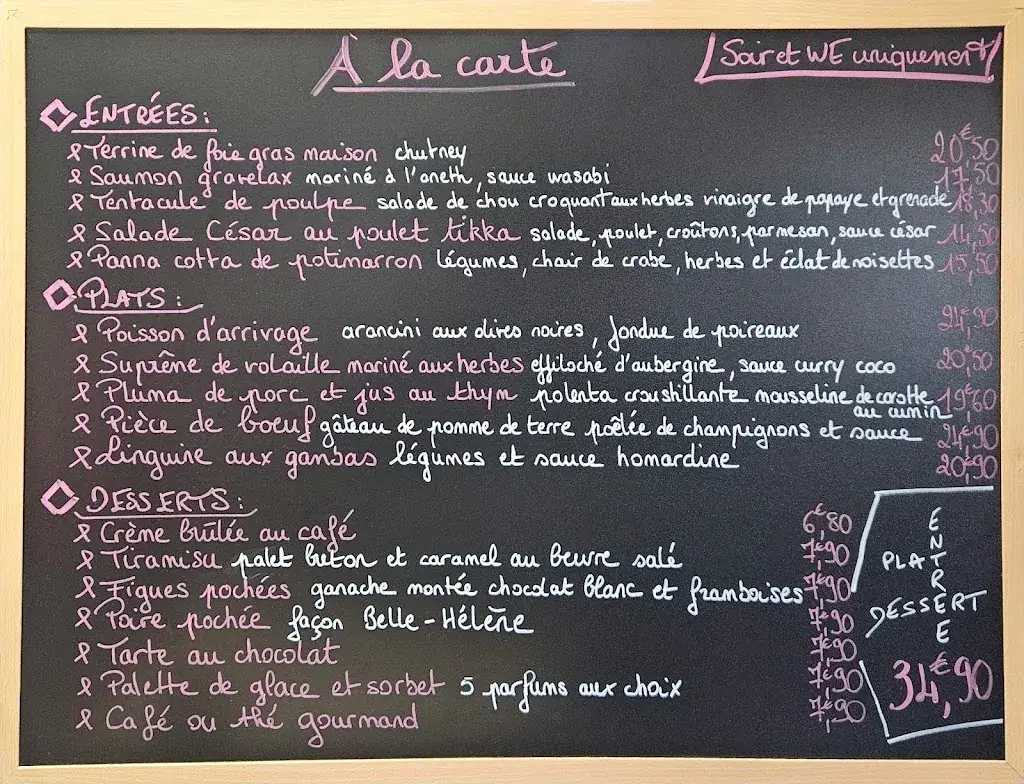 À la carte
Soir et WE uniquement
ENTRÉES :
Terrine de foie gras maison chutney 20€,50
Saumon gravelax mariné à l'aneth, sauce wasabi 17,50
Tentacule de poulpe salade de chou croquant aux herbes vinaigre de papaye et grenade 18,30
Salade César au poulet tikka salade, poulet, croûtons, parmesan, sauce césar 14,50
Panna cotta de potimarron légumes, chair de crabe, herbes et éclat de noisettes 15,50
PLATS :
Poisson d'arrivage arancini aux olives noires, fondue de poireaux
Suprême de volaille mariné aux herbes effiloché d'aubergine, sauce curry coco 20€,50
Pluma de porc et jus au thym polenta croustillante mousseline de carotte 19€,60
au cumin
Pièce de boeuf gâteau de pomme de terre poêlée de champignons et sauce
Linguine aux gambas légumes et sauce homardine 20€,90
DESSERTS :
Crème brûlée au café 6€,80
Tiramisu palet breton et caramel au beurre salé 7€,90
Figues pochées ganache montée chocolat blanc et framboises 7€,90
Poire pochée façon Belle-Hélène 7€,90
Tarte au chocolat 7€,90
Palette de glace et sorbet 5 parfums aux choix 7€,90
Café ou thé gourmand 7€,90
ENTREE
PLAT
DESSERT
34€,90